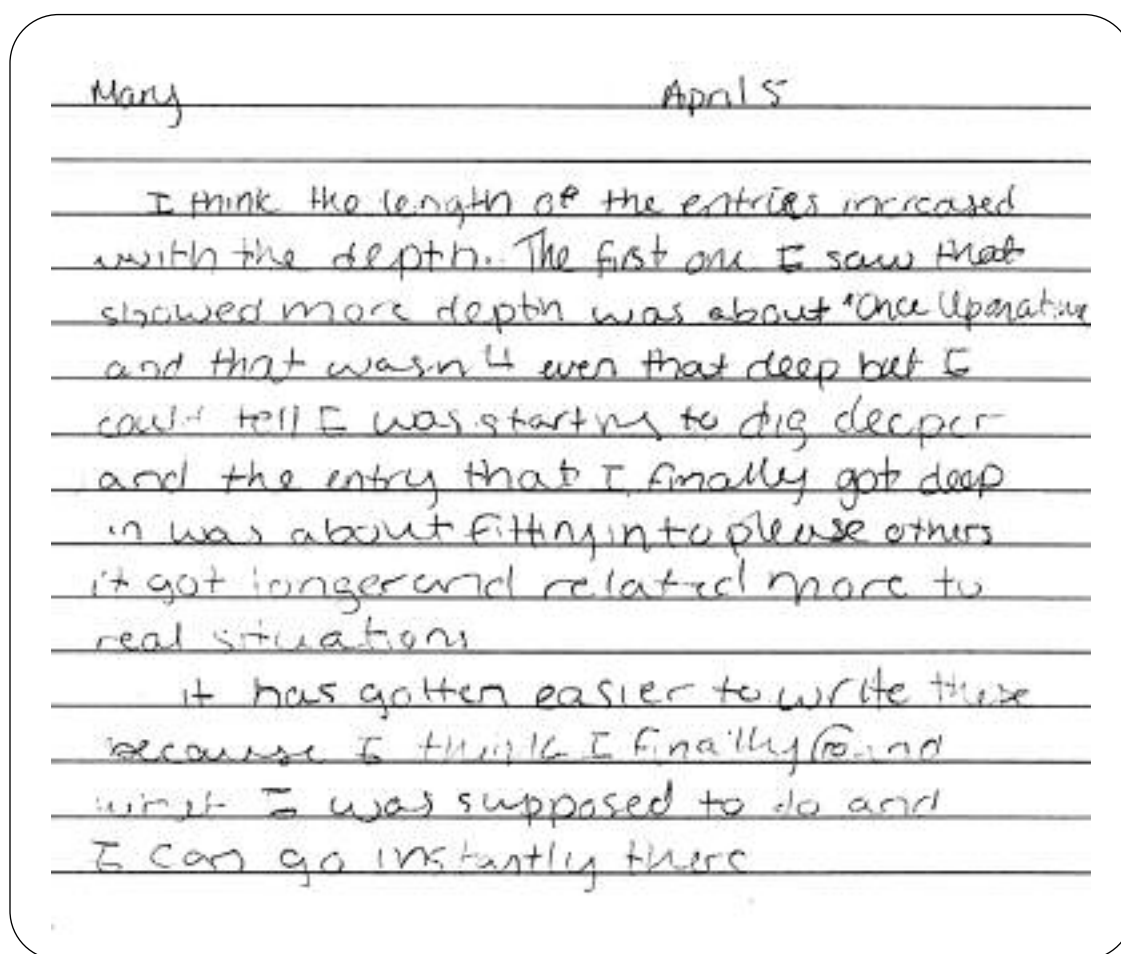 Mary April 5
I think the length of the entries increased
with the depth. The first one I saw that
showed more depth was about "Once Upon a time
and that wasn't even that deep but I
could tell I was starting to dig deeper
and the entry that I finally got deep
in was about fitting in to please others
it got longer and related more to
real situations
it has gotten easier to write these
because I think I finally found
what I was supposed to do and
I can go instantly there